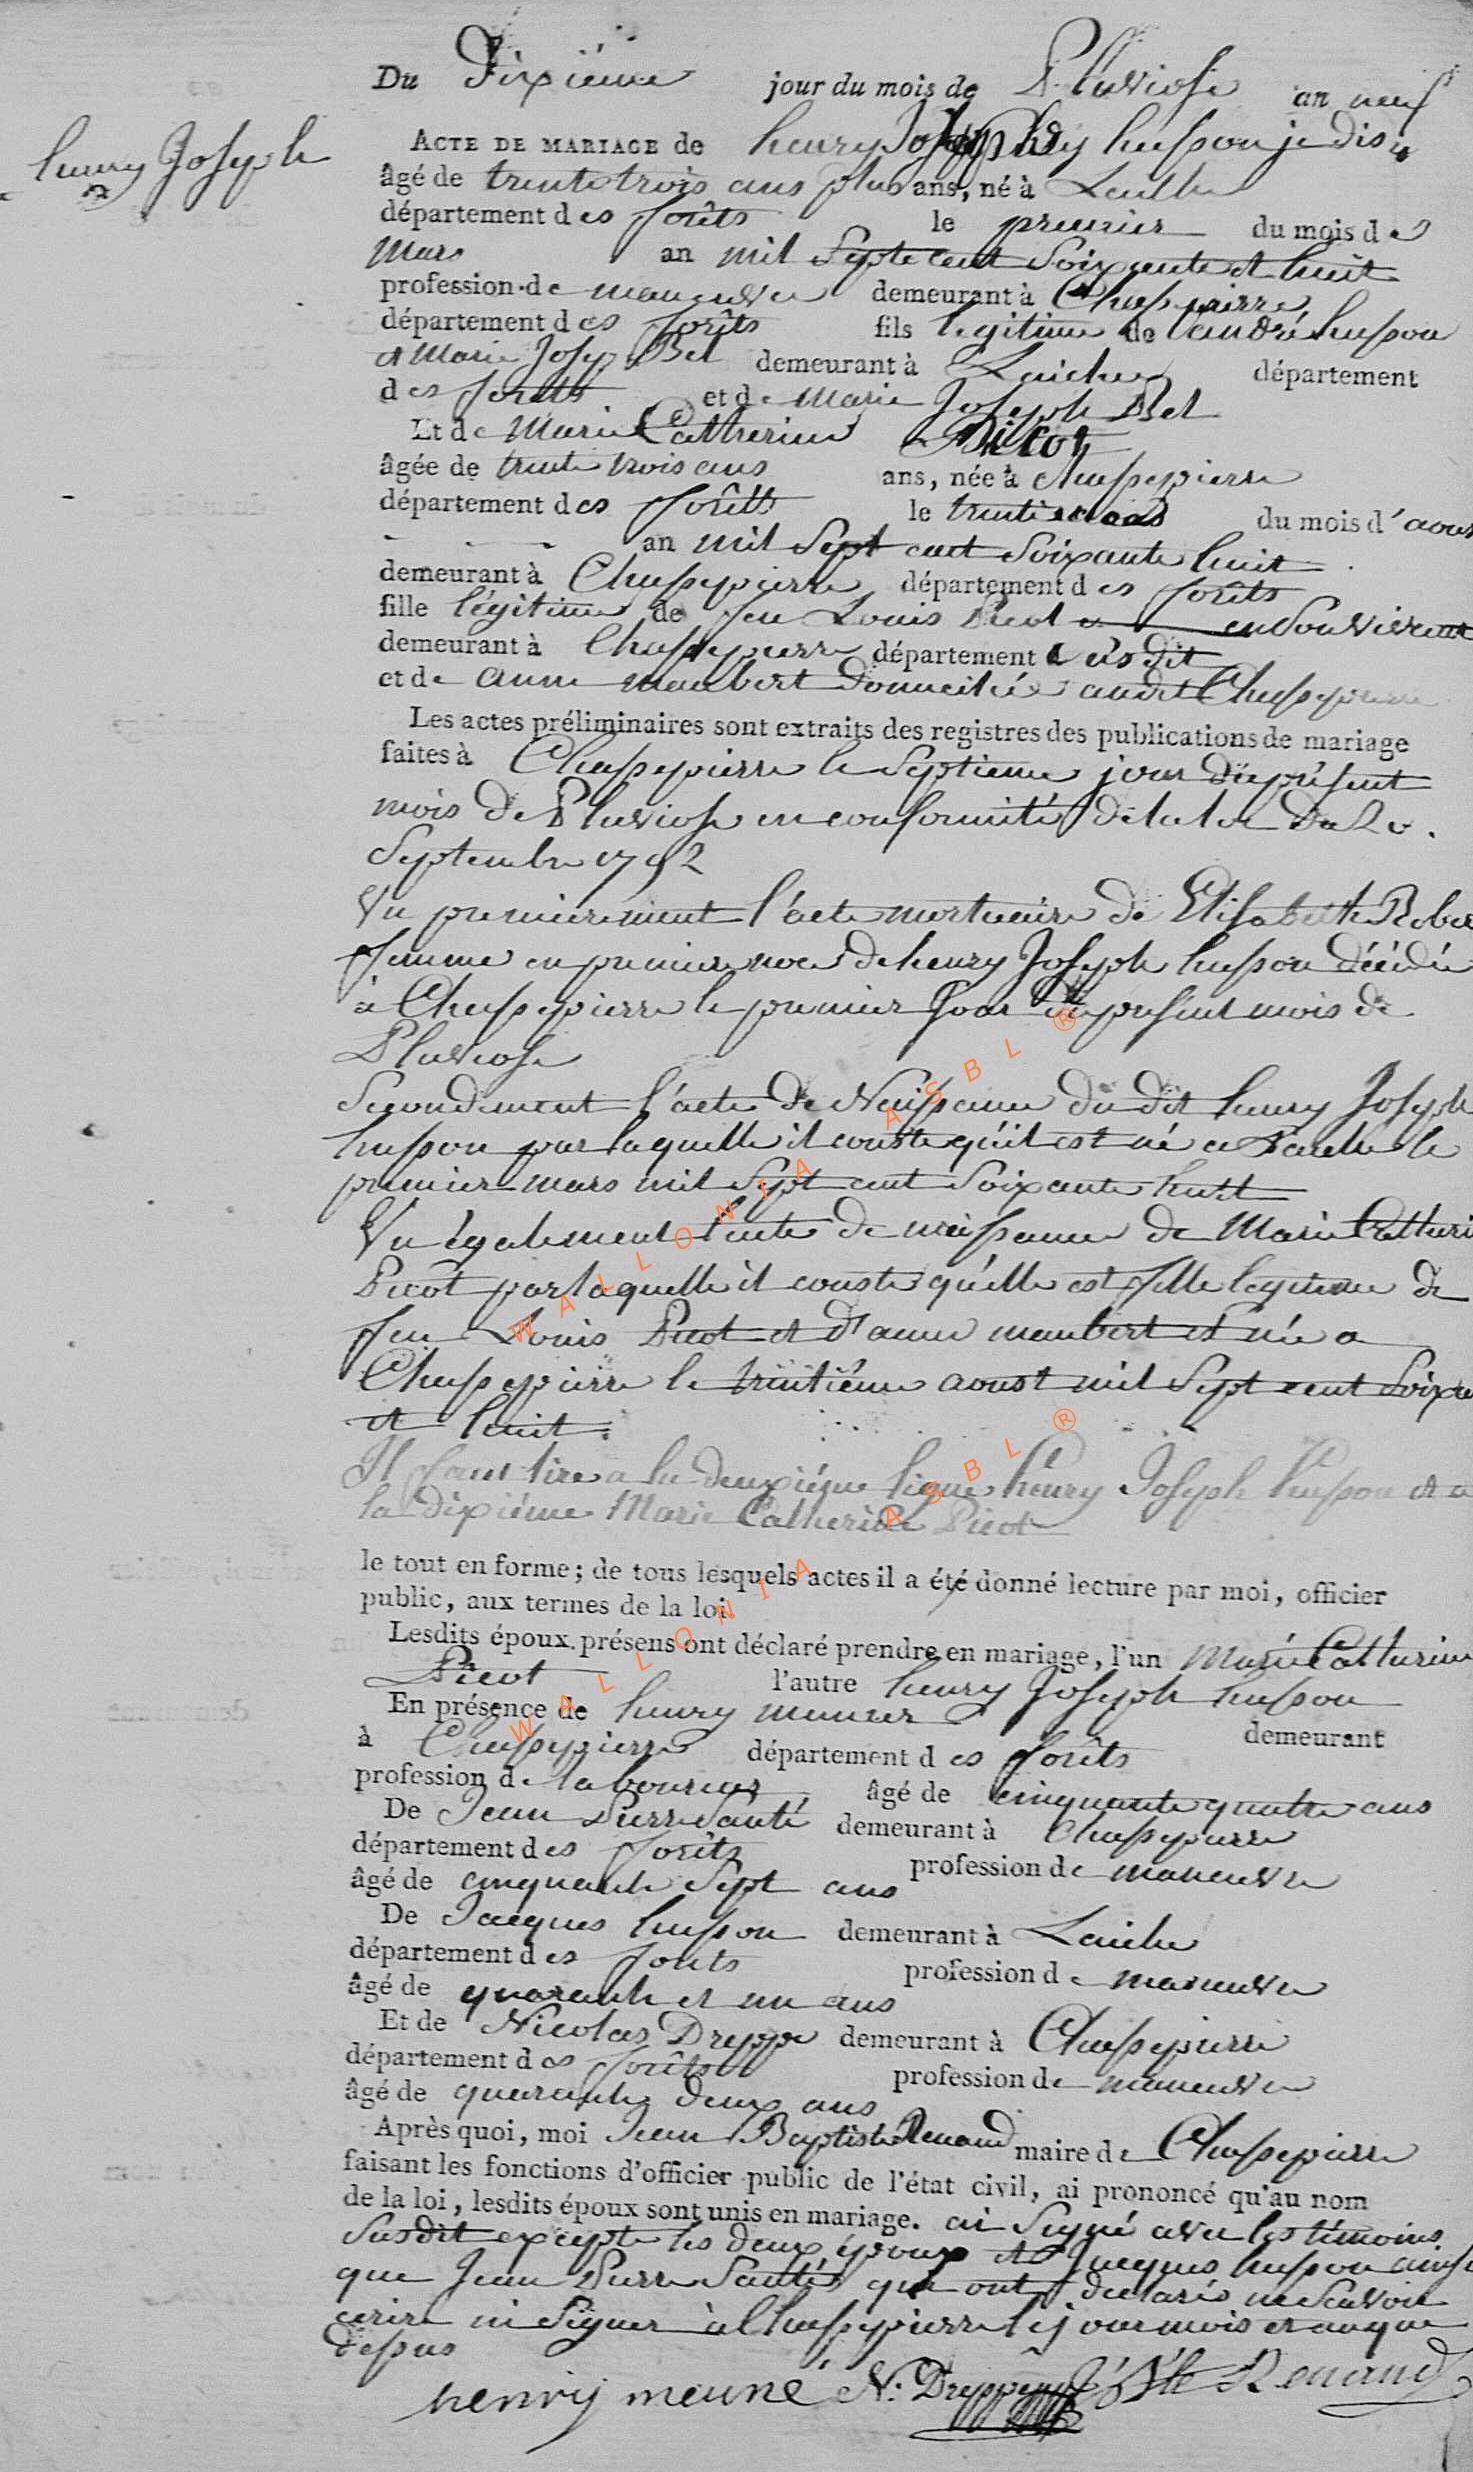 Du Dixiéme jour du mois de Pluviose an neuf
henry Joseph
ACTE DE MARIAGE de henry Joseph husson je dis
âgé de trente trois ans plus ans, né à Laiche
département des forêts le premier du mois de
Mars an mil Septe cent Soixante et huit
profession de maneuvre demeurant à Chassepierre
département des forêts fils legitime de andré husson
et Marie Josep Bel demeurant à Laiche département
des forêts et de Marie Joseph Bel
Et de Marie Catherine Picot
âgée de trente trois ans ans, née à Chassepierre
département des forêts le du mois d'aoust
an mil Sept cent Soixante huit
demeurant à Chassepierre département des forêts
fille légitime de feu Louis Picot
demeurant à Chassepierre département susdit
et de anne maubert domiciliée audit Chassepierre
Les actes préliminaires sont extraits des registres des publications de mariage
faites à Chassepierre le Septieme jour du présent
mois de Pluviose en conformité de la loi du 20.
Septembre 1792
Vu premierement l'acte mortuaire de Elisabethe Rober
femme en premiere noce de henry Joseph husson décédée
à Chassepierre le premier Jour du present mois de
Pluviose
Secondement l'acte de Naissance du dit henry Joseph
husson par laquelle il conste qu'il est né a Laiche le
premier mars mil Sept cent Soixante huit
Vu également l'acte de naissance de Marie Catheri
Picot par laquelle il conste qu'elle est fille legitime de
feu Louis Picot et d'anne maubert et née a
Chassepierre le trentiéme aoust mil Sept cent Soixante
et huit.
Il faut lire a la deuxiéme ligne henry Joseph husson et a
la dixiéme Marie Catherine Picot
le tout en forme; de tous lesquels actes il a été donné lecture par moi, officier
public, aux termes de la loi.
Lesdits époux présens ont déclaré prendre en mariage, l'un Marie Catherine
Picot l'autre henry Joseph husson
En présence de henry meunier demeurant
à Chassepierre département des forêts
profession de laboureur âgé de cinquante quatre ans
De Jean Pierre Santé demeurant à Chassepierre
département des forêts profession de maneuvre
âgé de cinquante Sept ans
De Jacques husson demeurant à Laiche
département des forets profession de maneuvre
âgé de quarante et un ans
Et de Nicolas Dreppe demeurant à Chassepierre
département des forêts profession de maneuvre
âgé de quarante deux ans
Après quoi, moi Jean Baptiste Renaud maire de Chassepierre
faisant les fonctions d'officier public de l'état civil, ai prononcé qu'au nom
de la loi, lesdits époux sont unis en mariage. ai Signé avec les témoins
Susdit excepte les deux époux et Jacques husson ainsi
que Jean Pierre Santé qui ont declaré ne Scavoir
ecrire ni Signer à Chassepierre les jour mois et an que
dessus
henrij meuné N: Dreppe J: Bte Renaud
WALLONIA ASBL ®
WALLONIA ASBL ®